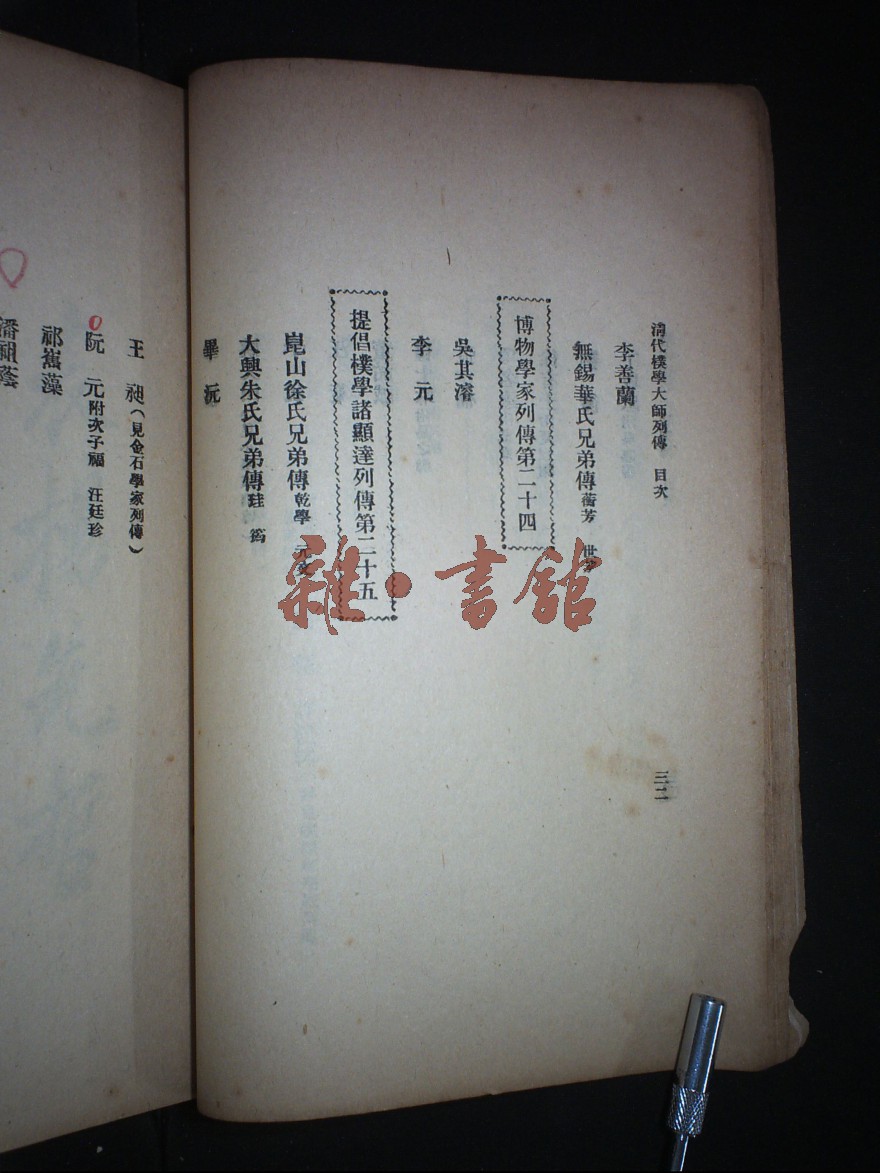 清代樸學大師列傳 目次
李善蘭
無錫華氏兄弟傳 蘅芳 世芳
博物學家列傳第二十四
吳其濬
李元
提倡樸學諸顯達列傳第二十五
崑山徐氏兄弟傳 乾學 元文
大興朱氏兄弟傳 珪 筠
畢沅
三二
王昶(見金石學家列傳)
阮元 附次子福 汪廷珍
祁寯藻
潘祖蔭
雜·書館